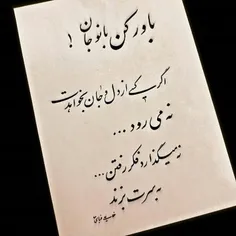 باور کن بانو جان !
اگر کسے از دل و جان بخواهدت
نه می رود ...
نه میگذارد فکر رفتن ...
به سرت بزند